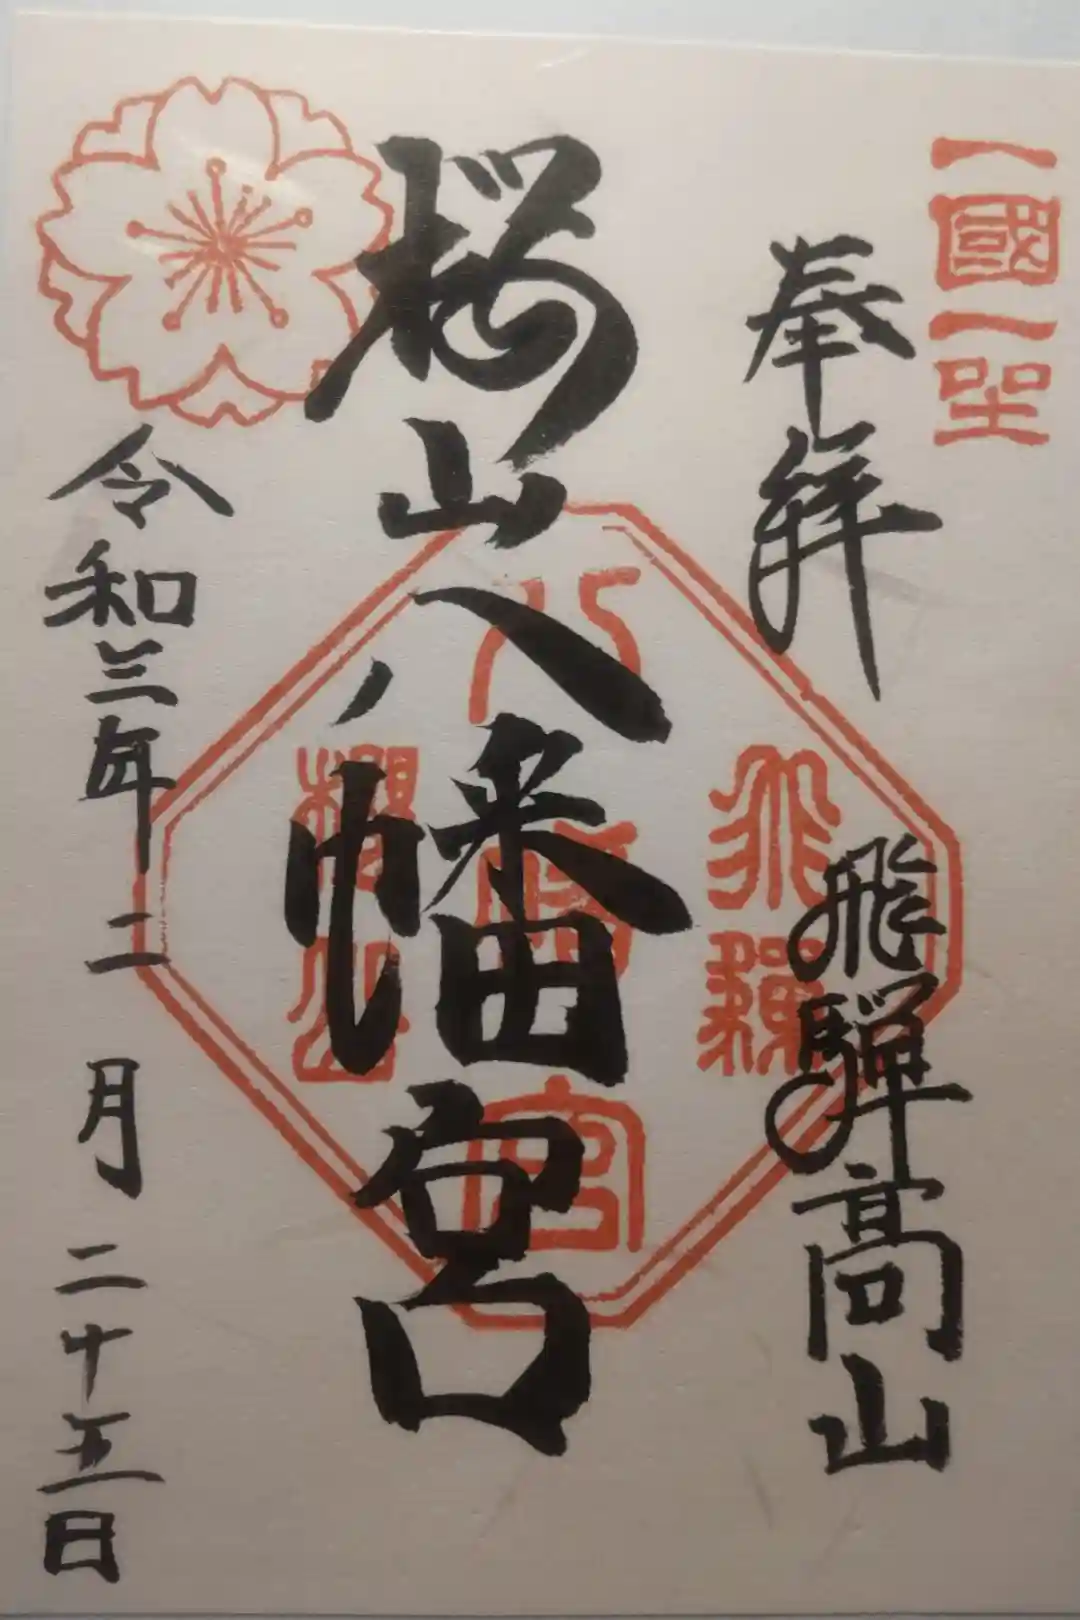 一國一聖
奉拜
飛騨高山
桜山八幡宮
飛驒
八幡宮
櫻山
令和三年二月二十五日